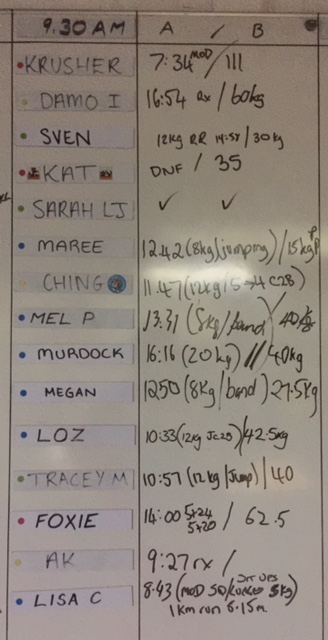 9.30 AM A / B
KRUSHER 7:34 MOD / 111
DAMO I 16:54 Rx / 60kg
SVEN 12kg RR 14:58 / 30kg
KAT DNF / 35
SARAH LJ ✓ ✓
MAREE 12.42 (8kg/jumping) / 15kg P
CHING 11.47 (12kg/5
MEL P 13.31 (8kg/band) / 40kg
MURDOCK 16:16 (20kg) // 40kg
MEGAN 1250 (8kg/band) 27.5kg
LOZ 10:33 (12kg / 42.5kg
TRACEY M 10:57 (12kg/Jump) / 40
FOXIE 14:00 5x24 5x20 / 62.5
AK 9:27 rx /
LISA C 8:43 (MOD 50/ 5kg)
1km run 6.15m